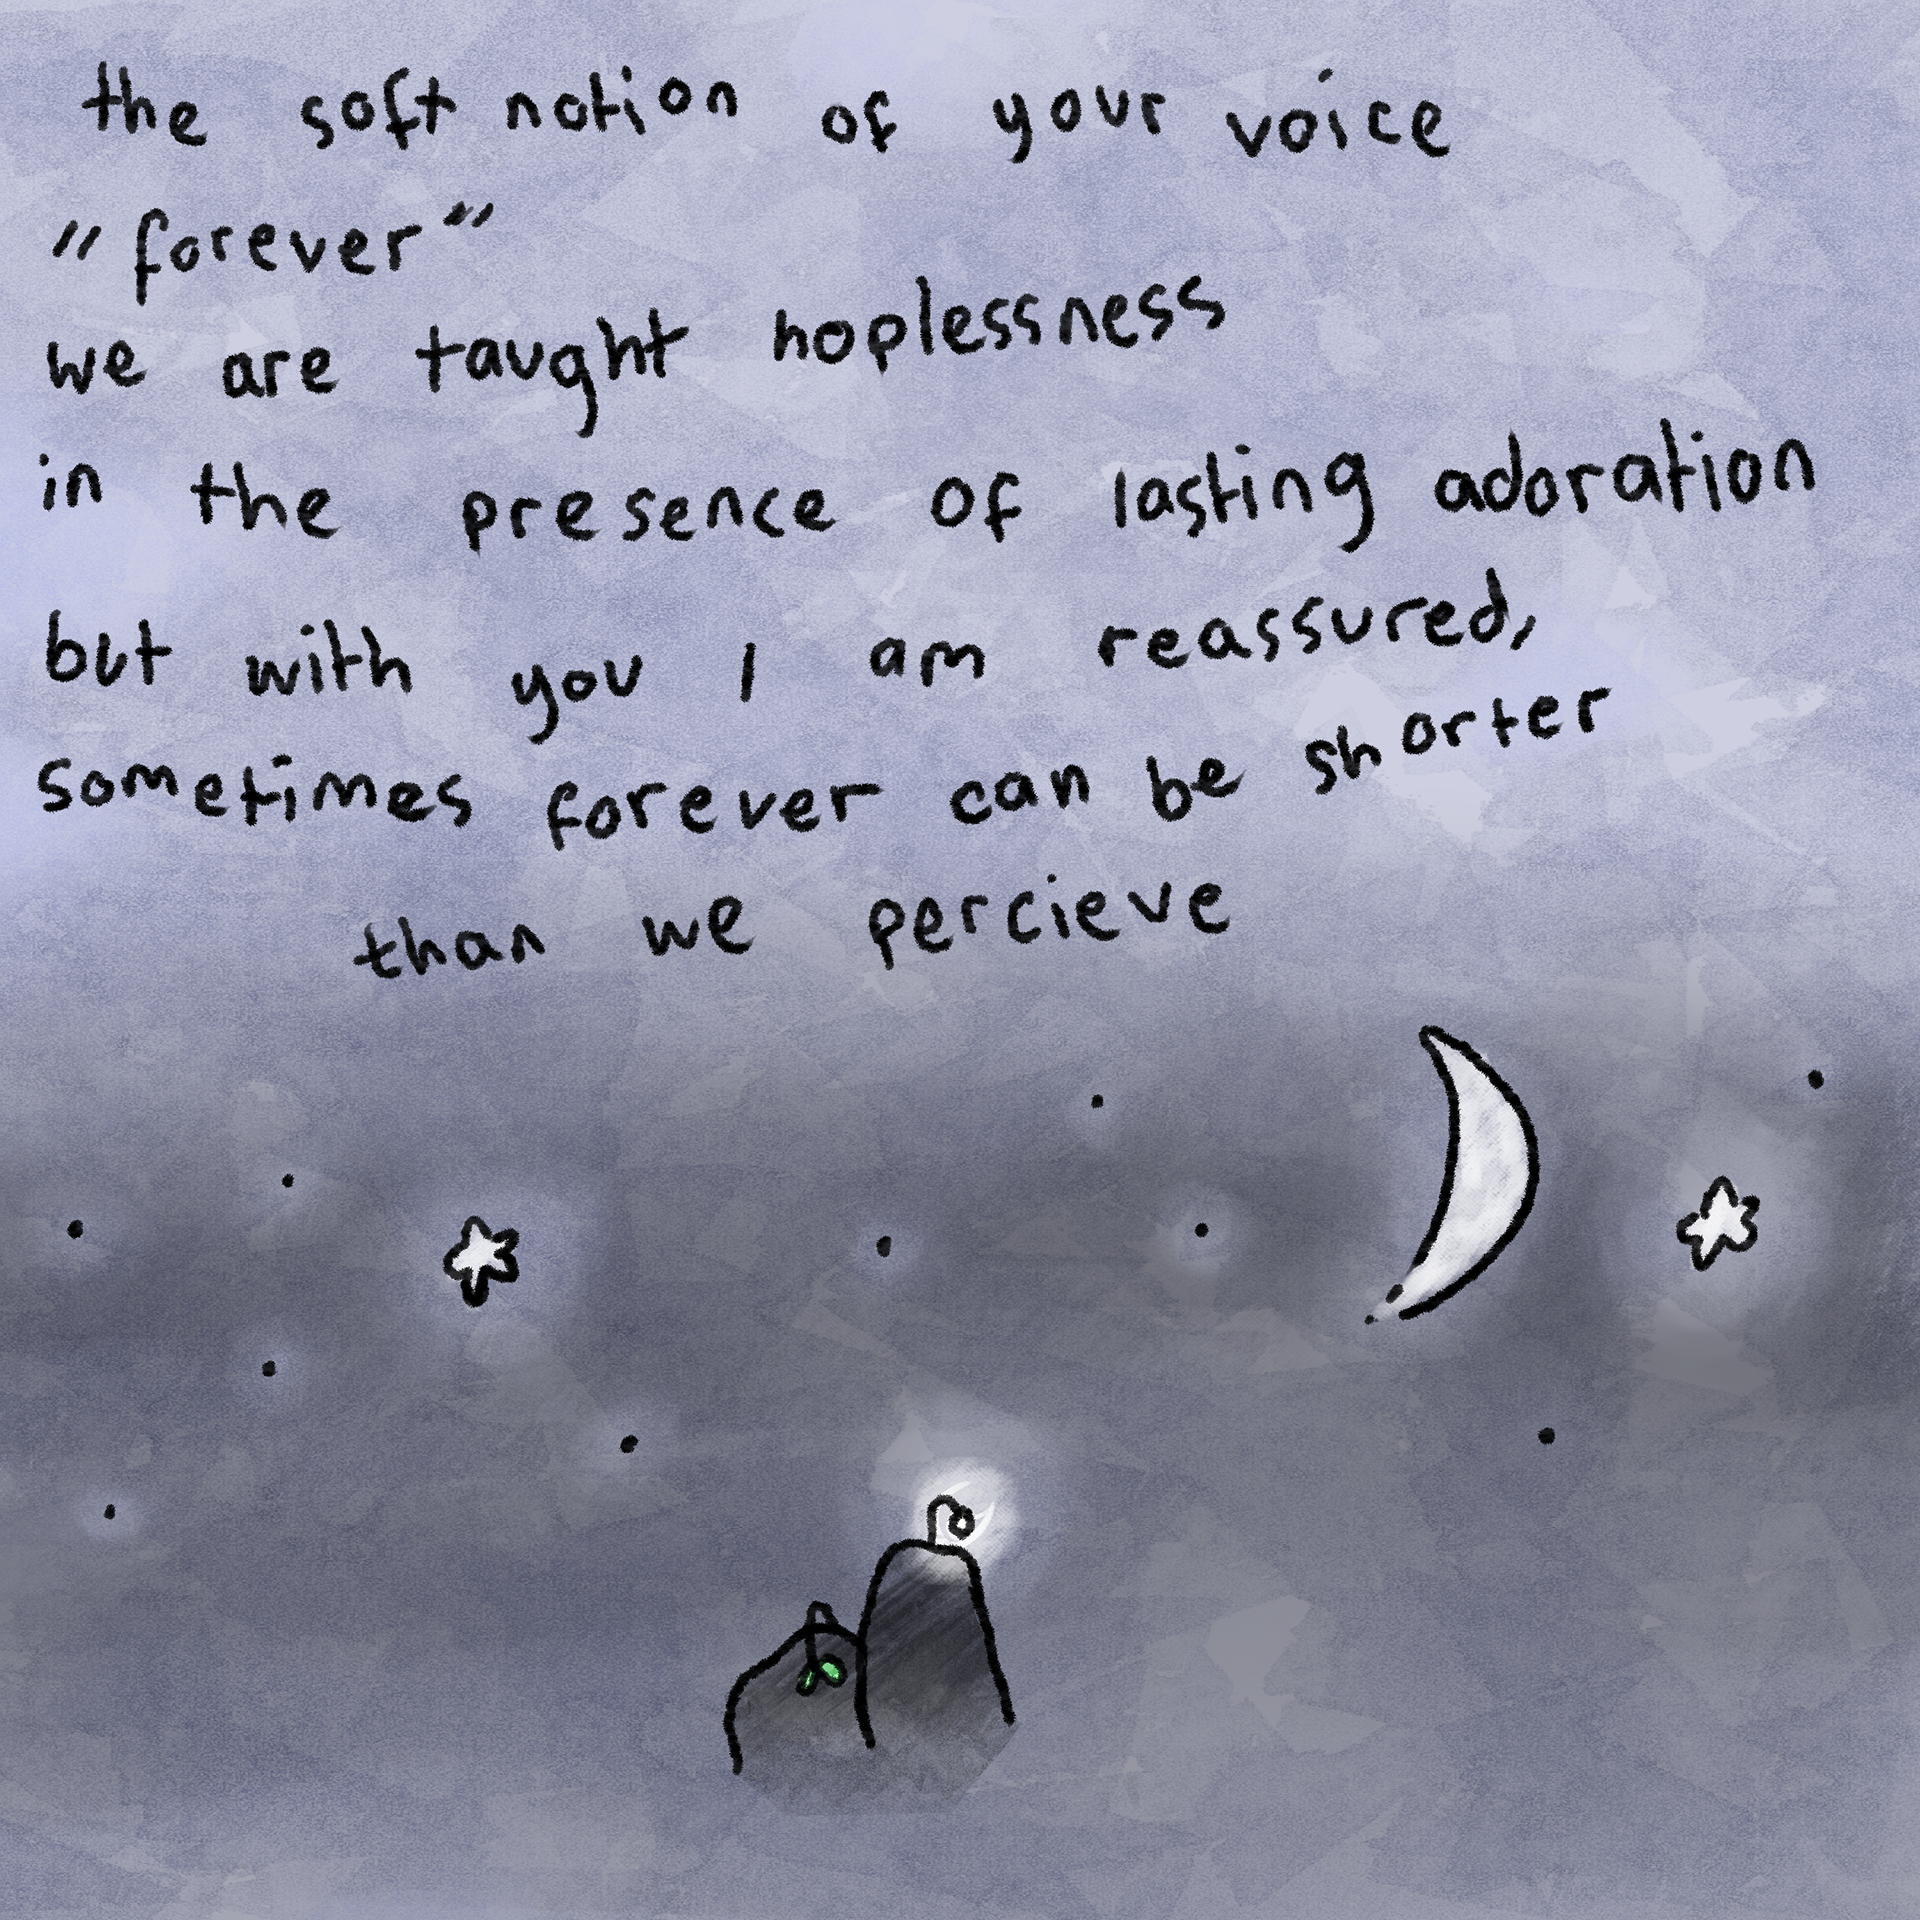 the soft notion of your voice
"forever"
we are taught hoplessness
in the presence of lasting adoration
but with you I am reassured,
sometimes forever can be shorter
than we percieve